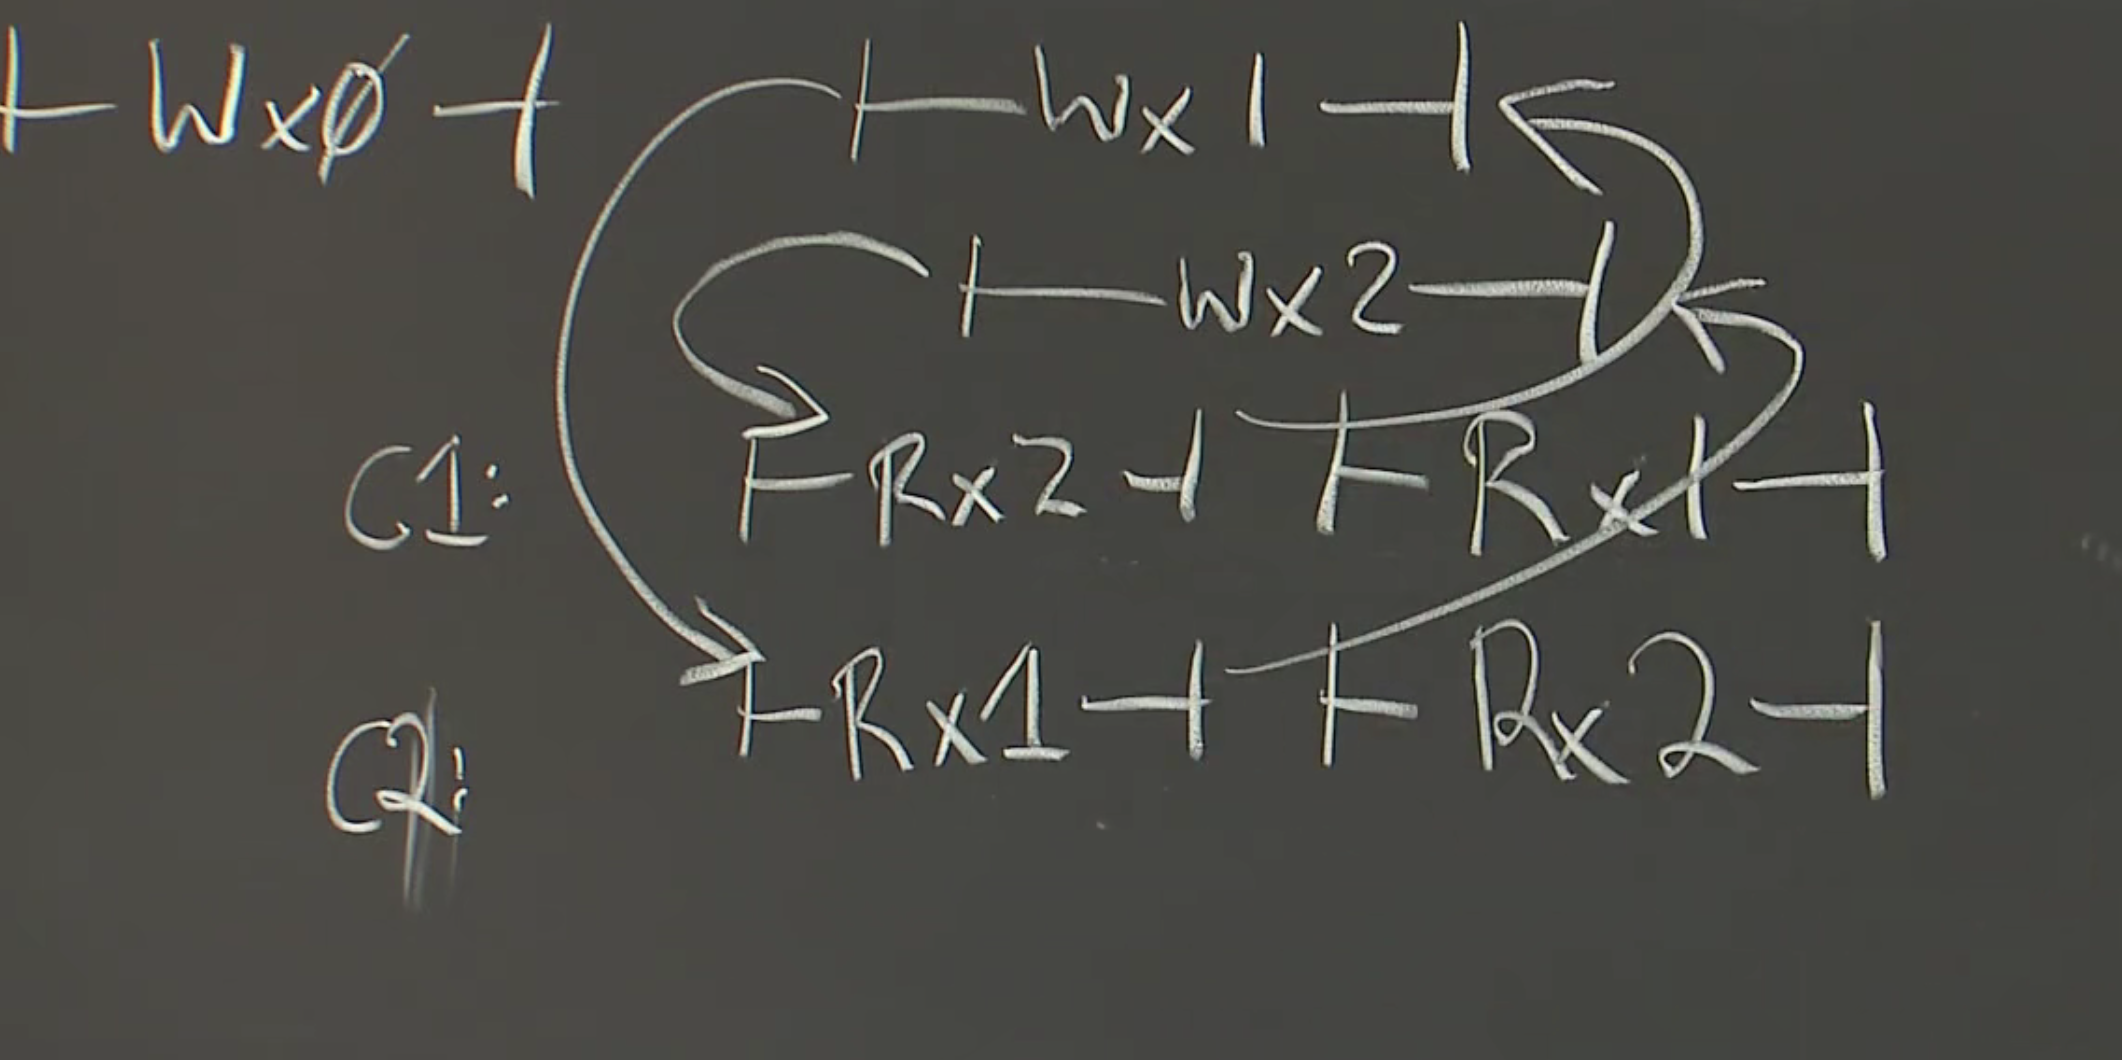 |-Wx0-| |-Wx1-|
|-Wx2-|
C1: |-Rx2-| |-Rx1-|
C2: |-Rx1-| |-Rx2-|